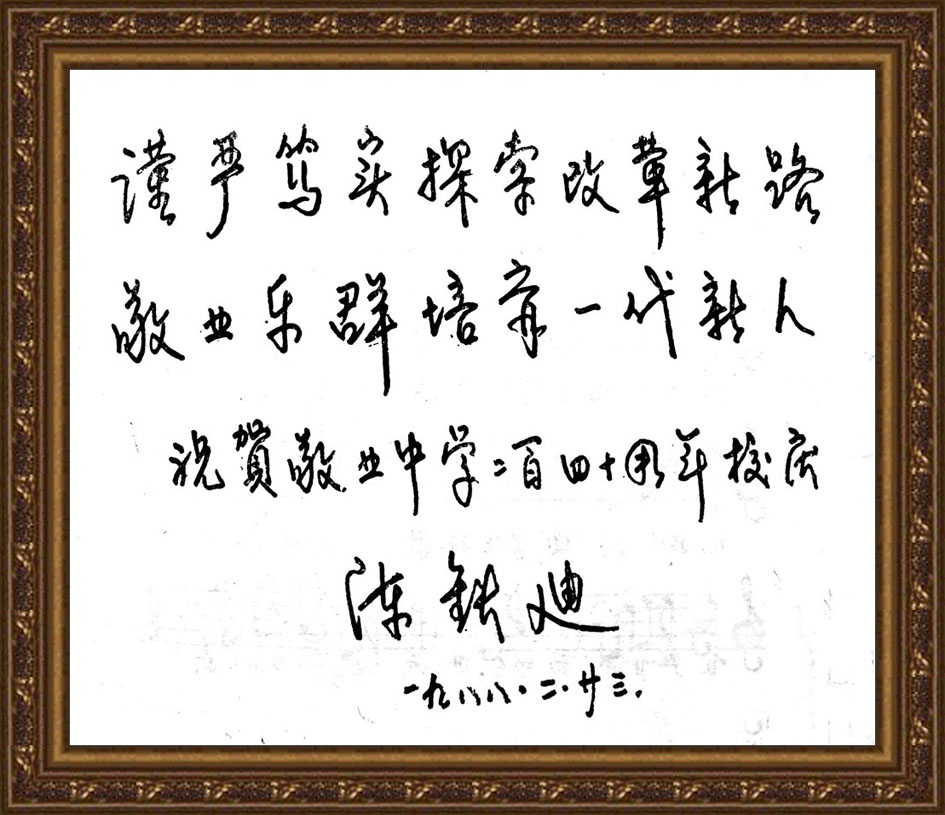 谨严笃实探索改革新路
敬业乐群培育一代新人
祝賀敬业中学二百四十周年校庆
陈铁迪
一九八八.二.廿三.